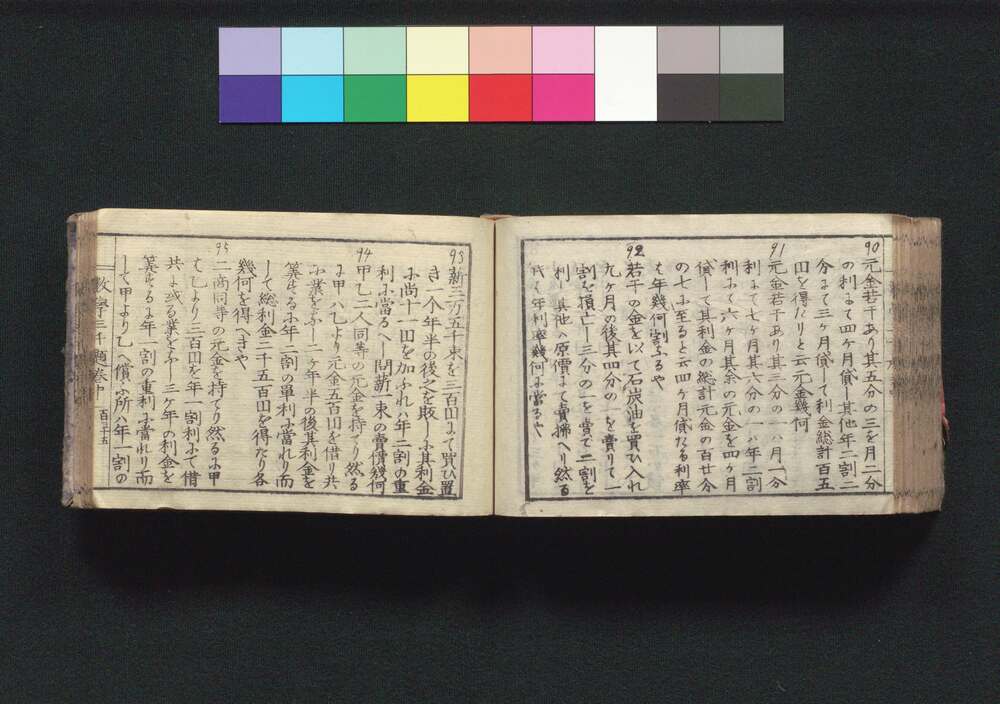 90
元金若干あり其五分の三を月二分
の利にて四ヶ月貸し其他年二割二
分にて三ヶ月貸して利金総計百五
円を得たりと云元金幾何
91
元金若干あり其三分の一八月一分
利にて七ヶ月其六分の一ハ年二割
利にて六ヶ月其余の元金を四ヶ月
貸して其利金の総計元金の百廿分
の七に至ると云四ヶ月貸たる利率
は年幾何割なるや
92
若干の金を以て石炭油を買ひ入れ
九ヶ月の後其四分の一を賣りて一
割を損亡し三分の一を當て二割を
利し其他ハ原價にて賣拂へり然る
時ハ年利率幾何に當るや
93
新三万五千束を三百円にて買ひ置
き一个年半の後之を販しに其利金
に尚十一円を加ふれハ年二割の重
利に當るへし問薪一束の賣價幾何
94
甲乙二人同等の元金を持てり然る
に甲ハ乙より元金五百円を借り共
に業をなし二ヶ年半の後其利金を
算するに年二割の單利に當れり而
して総利金二千五百円を得たり各
幾何を得へきや
95
二商同等の元金を持てり然るに甲
は乙より三百円を年一割利にて借
共に或る業をなし三ヶ年の利金を
算するに年一割の重利に當れり而
して甲より乙へ償ふ所ハ年一割の
数学三千題巻中 百三十五